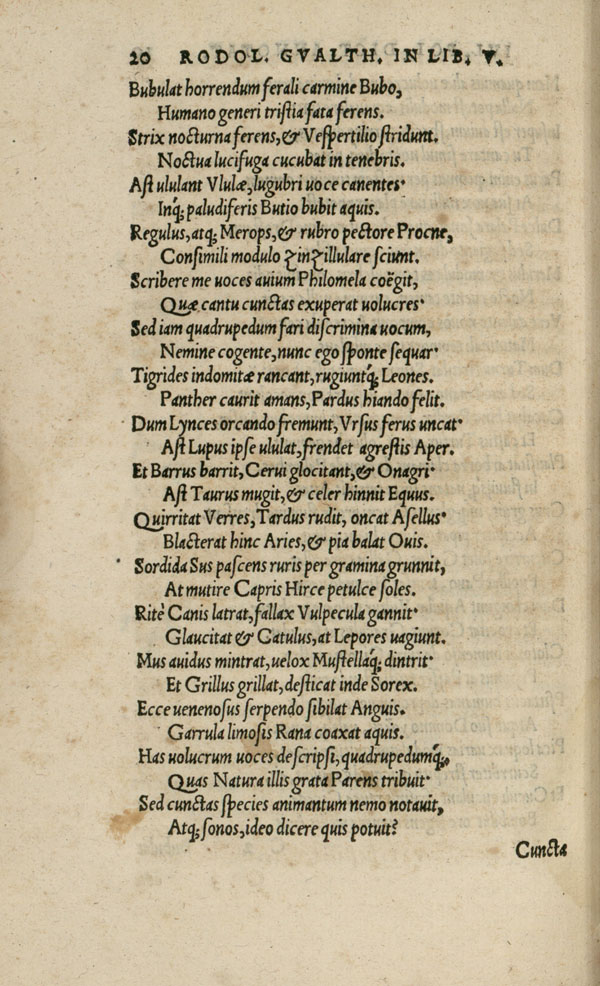 20 RODOL. GVALTH. IN LIB. V.
Bubulat horrendum ferali carmine Bubo,
Humano generi tristia fata ferens.
Strix nocturna ferens, & Vespertilio stridunt.
Noctua lucifuga cucubat in tenebris.
Ast ululant Vlulæ, lugubri uoce canentes·
Inq́; paludiferis Butio bubit aquis.
Regulus, atq; Merops, & rubro pectore Procne,
Consimili modulo ZinZillulare sciunt.
Scribere me uoces auium Philomela coëgit,
Quæ cantu cunctas exuperat uolucres·
Sed iam quadrupedum fari discrimina uocum,
Nemine cogente, nunc ego sponte sequar·
Tigrides indomitæ rancant, rugiuntq́; Leones.
Panther caurit amans, Pardus hiando felit.
Dum Lynces orcando fremunt, Vrsus ferus uncat·
Ast Lupus ipse ululat, frendet agrestis Aper.
Et Barrus barrit, Cerui glocitant, & Onagri·
Ast Taurus mugit, & celer hinnit Equus.
Quirritat Verres, Tardus rudit, oncat Asellus·
Blacterat hinc Aries, & pia balat Ouis.
Sordida Sus pascens ruris per gramina grunnit,
At mutire Capris Hirce petulce soles.
Ritè Canis latrat, fallax Vulpecula gannit·
Glaucitat & Catulus, at Lepores uagiunt.
Mus auidus mintrat, uelox Mustellaq́; dintrit·
Et Grillus grillat, desticat inde Sorex.
Ecce uenenosus serpendo sibilat Anguis.
Garrula limosis Rana coaxat aquis.
Has uolucrum uoces descripsi, quadrupedumq́;,
Quas Natura illis grata Parens tribuit·
Sed cunctas species animantum nemo notauit,
Atq; sonos, ideo dicere quis potuit?
Cuncta